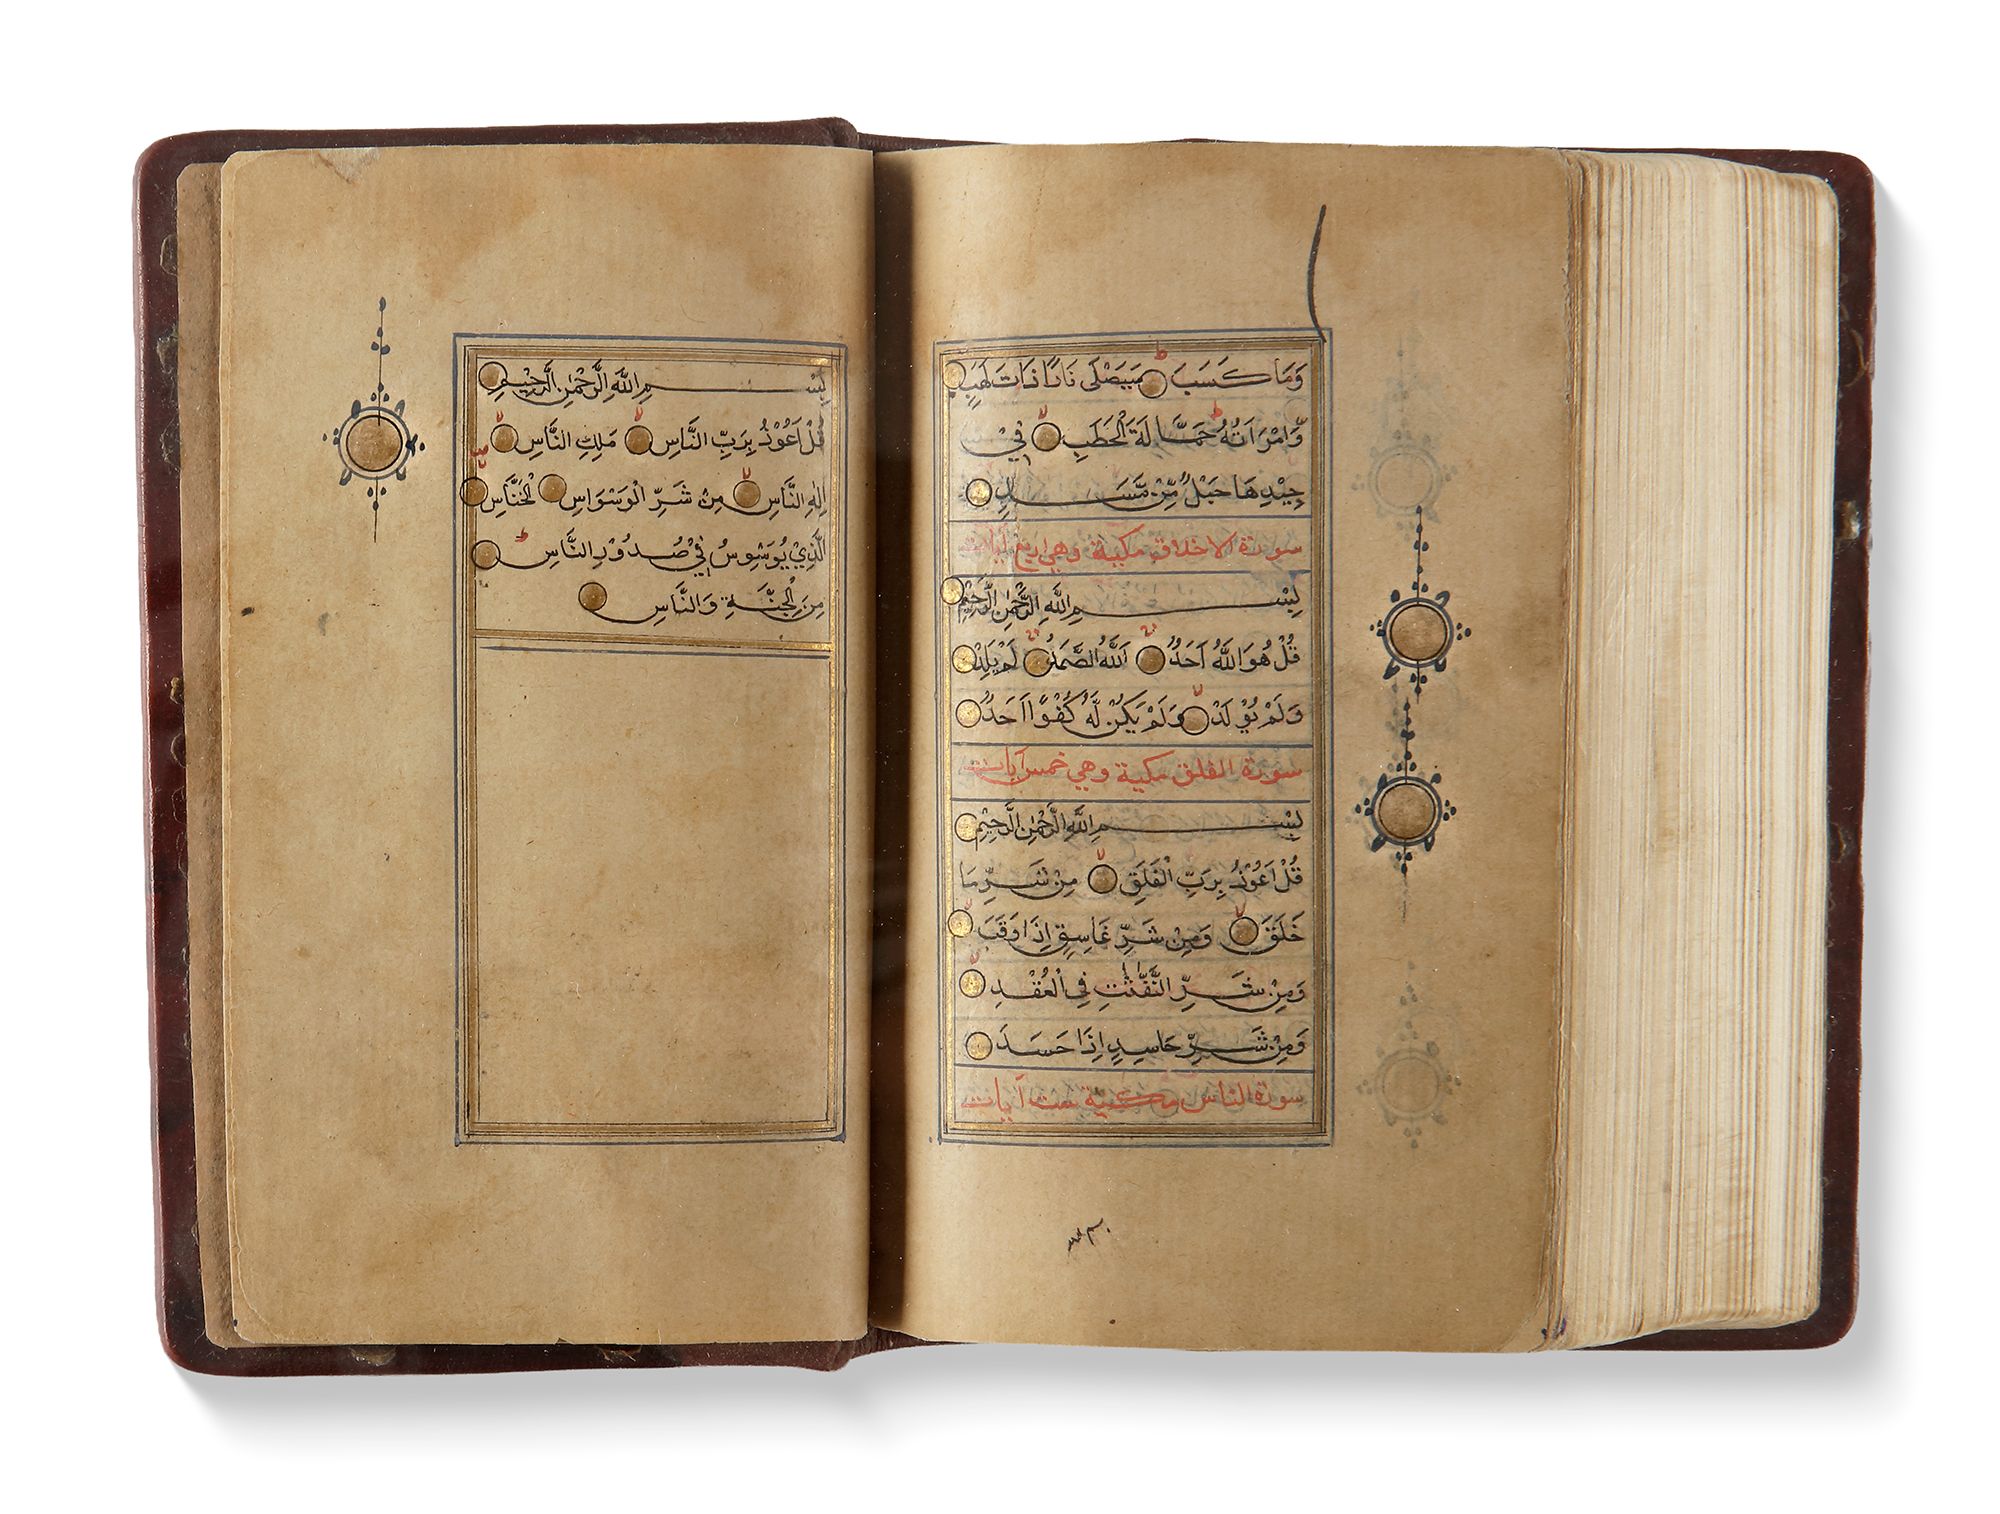 وَمَا كَسَبَ سَيَصْلَى نَارًا ذَاتَ لَهَبٍ
وَّامْرَاَتُهُ حَمَّالَةَ الْحَطَبِ فِيْ
جِيْدِهَا حَبْلٌ مِّنْ مَّسَدٍ
سورة الاخلاق مكية وهي اربع آيات
بِسْمِ اللّٰهِ الرَّحْمٰنِ الرَّحِيْمِ
قُلْ هُوَ اللّٰهُ اَحَدٌ اَللّٰهُ الصَّمَدُ لَمْ يَلِدْ
وَلَمْ يُوْلَدْ وَلَمْ يَكُنْ لَّهُ كُفُوًا اَحَدٌ
سورة الفلق مكية وهي خمس آيات
بِسْمِ اللّٰهِ الرَّحْمٰنِ الرَّحِيْمِ
قُلْ اَعُوْذُ بِرَبِّ الْفَلَقِ مِنْ شَرِّ مَا
خَلَقَ وَمِنْ شَرِّ غَاسِقٍ اِذَا وَقَبَ
وَمِنْ شَرِّ النَّفّٰثٰتِ فِي الْعُقَدِ
وَمِنْ شَرِّ حَاسِدٍ اِذَا حَسَدَ
سورة الناس مكية ست آيات
بِسْمِ اللّٰهِ الرَّحْمٰنِ الرَّحِيْمِ
قُلْ اَعُوْذُ بِرَبِّ النَّاسِ مَلِكِ النَّاسِ
اِلٰهِ النَّاسِ مِنْ شَرِّ الْوَسْوَاسِ الْخَنَّاسِ
الَّذِيْ يُوَسْوِسُ فِيْ صُدُوْرِ النَّاسِ
مِنَ الْجِنَّةِ وَالنَّاسِ